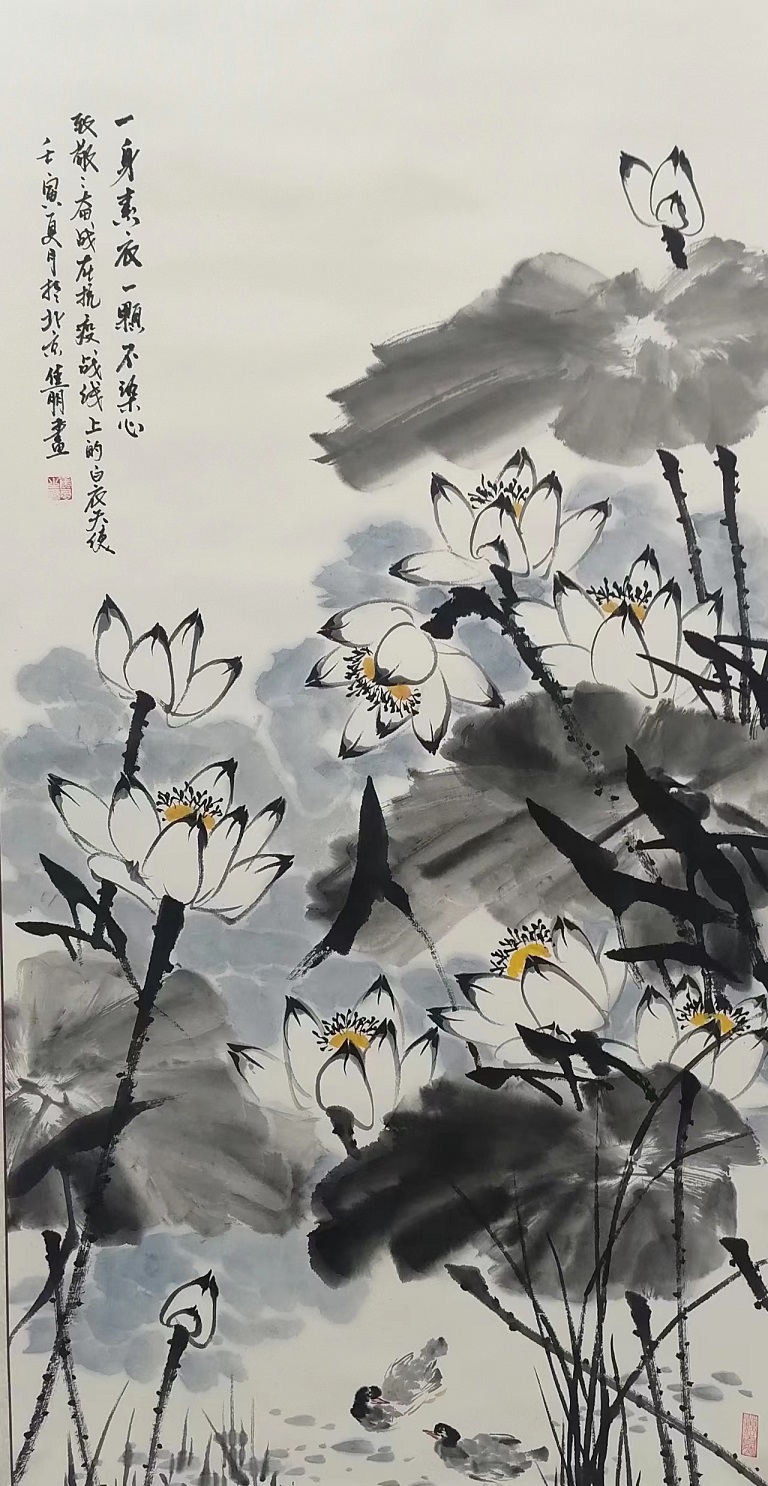 一身素衣一颗不染心
致敬：奋战在抗疫战线上的白衣天使
壬寅夏月於北京佳明畫